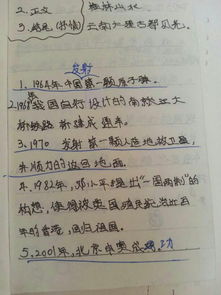 2. 正文 桂林山水
3. 结尾(抒情) 云南大理古都风光。
发射
1. 1964年中国第一颗原子弹。
2. 1968我国自行设计的南京长江大
桥 桥建成通车。
3. 1970 发射第一颗人造地球卫星,
并顺利的返回地面。
4. 1982年,邓小平提出“一国两制”的
构想,使得被英国殖民统治
年的香港,回归祖国。
5. 2001年,北京申奥成功